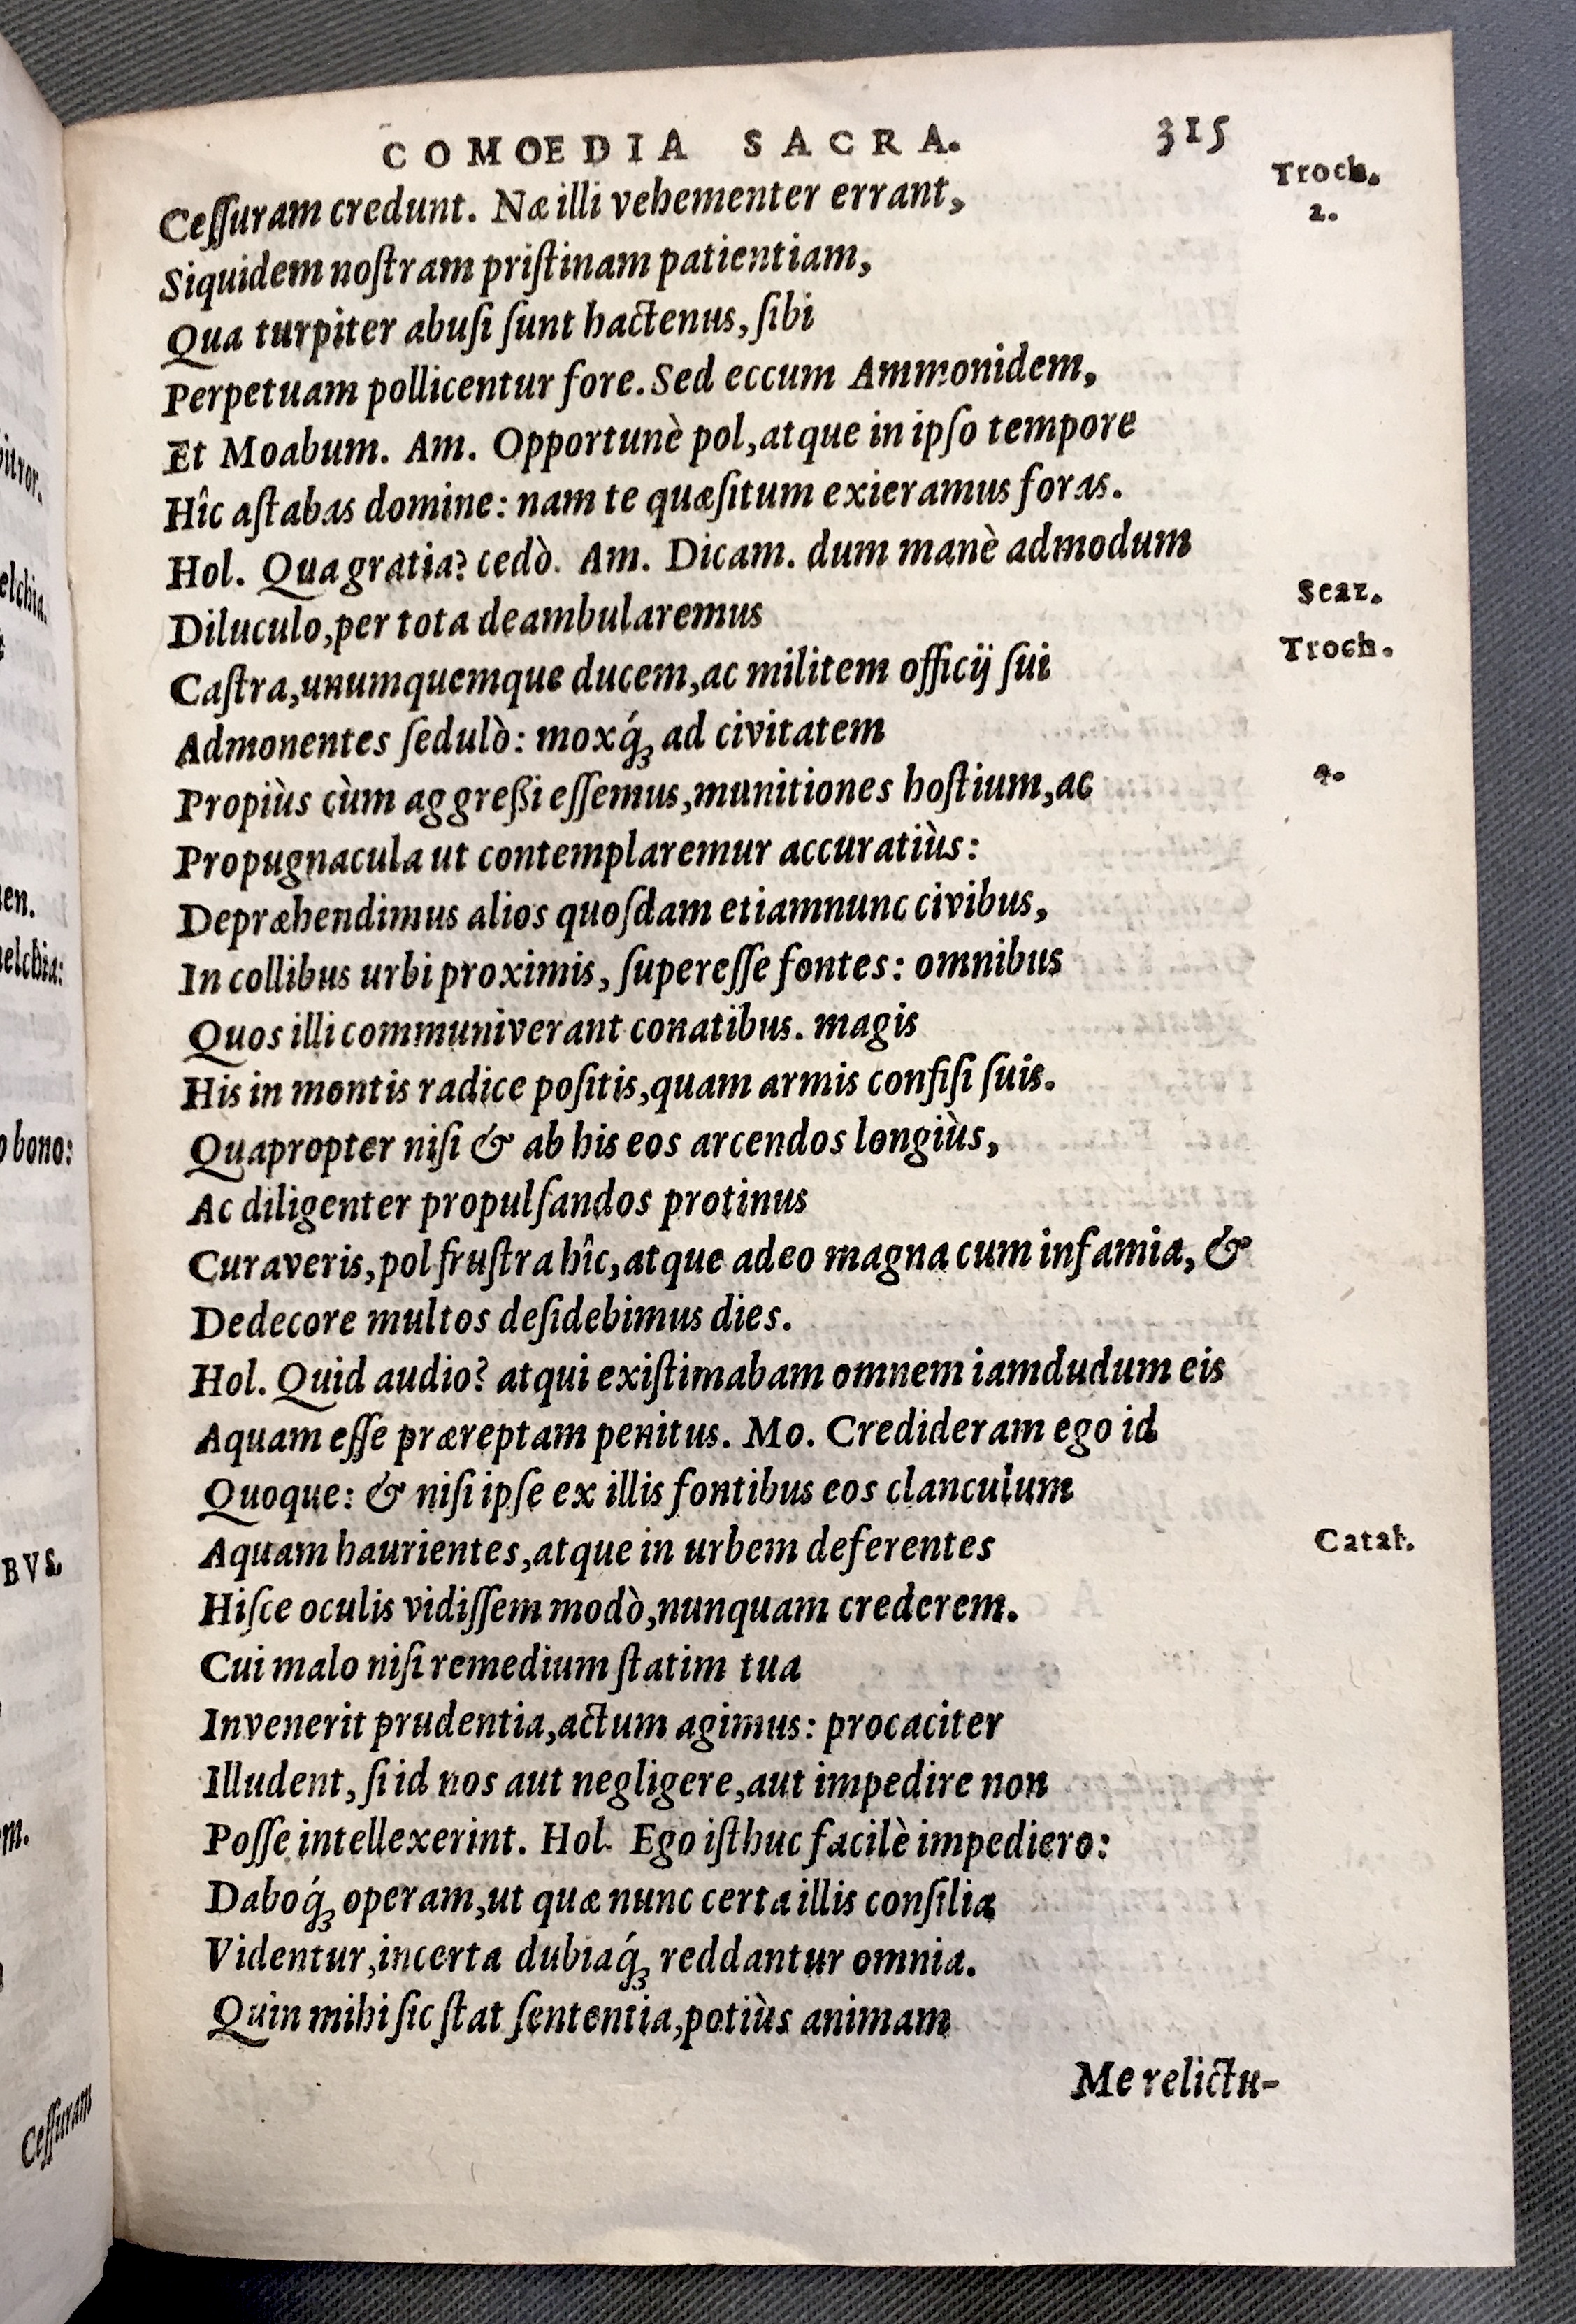 COMOEDIA SACRA. 315
Ceſſuram credunt. Næ illi vehementer errant, Troch.
2.
Siquidem noſtram priſtinam patientiam,
Qua turpiter abuſi ſunt hactenus, ſibi
Perpetuam pollicentur fore. Sed eccum Ammonidem,
Et Moabum. Am. Opportunè pol, atque in ipſo tempore
Hîc aſtabas domine: nam te quæſitum exieramus foras.
Hol. Qua gratia? cedò. Am. Dicam. dum manè admodum
Diluculo, per tota deambularemus Scaz.
Caſtra, unumquemque ducem, ac militem officij ſui Troch.
Admonentes ſedulò: moxq́ꝫ ad civitatem
Propiùs cùm aggreßi eſſemus, munitiones hoſtium, ac 4.
Propugnacula ut contemplaremur accuratiùs:
Depræhendimus alios quoſdam etiamnunc civibus,
In collibus urbi proximis, ſupereſſe fontes: omnibus
Quos illi communiverant conatibus. magis
His in montis radice poſitis, quam armis confiſi ſuis.
Quapropter niſi & ab his eos arcendos longiùs,
Ac diligenter propulſandos protinus
Curaveris, pol fruſtra hîc, atque adeo magna cum infamia, &
Dedecore multos deſidebimus dies.
Hol. Quid audio? atqui exiſtimabam omnem iamdudum eis
Aquam eſſe præreptam penitus. Mo. Credideram ego id
Quoque: & niſi ipſe ex illis fontibus eos clanculum
Aquam haurientes, atque in urbem deferentes Catal.
Hiſce oculis vidiſſem modò, nunquam crederem.
Cui malo niſi remedium ſtatim tua
Invenerit prudentia, actum agimus: procaciter
Illudent, ſi id nos aut negligere, aut impedire non
Poſſe intellexerint. Hol. Ego iſthuc facilè impediero:
Daboq́ꝫ operam, ut quæ nunc certa illis conſilia
Videntur, incerta dubiaq́ꝫ reddantur omnia.
Quin mihi ſic ſtat ſententia, potiùs animam
Me relictu-
elchia.
en.
elchia:
bono:
BVS.
m.
Ceſſuram